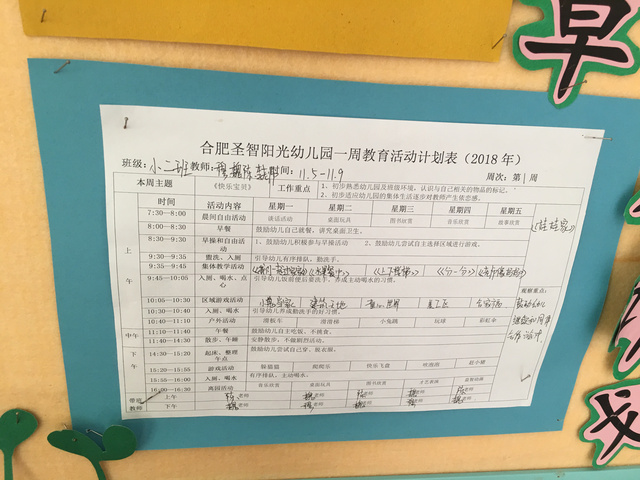 早
合肥圣智阳光幼儿园一周教育活动计划表（2018 年）
班级: 小二班 教师: 时间: 11.5-11.9 周次: 第 1 周
本周主题 《快乐宝贝》 工作重点 1、初步熟悉幼儿园及班环境，认识与自己相关的物品的标记。
2、初步适应幼儿园的集体生活逐步对教师产生依恋感。
时间 活动内容 星期一 星期二 星期三 星期四 星期五
7:30-8:00 晨间自由活动 谈话活动 桌面玩具 图书欣赏 音乐欣赏 故事欣赏
《娃娃家》
上午
8:00-8:30 早餐 鼓励幼儿自己就餐，讲究桌面卫生。
8:30-9:30 早操和自由活动 1、鼓励幼儿积极参与早操活动 2、鼓励幼儿尝试自主选择区域进行游戏。
盥洗、入厕 引导幼儿有序排队，勤洗手。
集体教学活动 《分一分》
9:45-10:05 入厕、喝水、点心 引导幼儿饭前便后要洗手，养成主动喝水的习惯。
观察重点:
10:05-10:30 区域游戏活动 建筑天地 美工区
10:30-10:40 入厕、喝水 引导幼儿养成勤洗手的好习惯。
10:40-11:10 户外活动 滑板车 滑滑梯 小兔跳 玩球 彩虹伞
中午
11:10-11:40 午餐 鼓励幼儿自主吃饭，不挑食。
11:40-14:30 散步、午睡 安静散步，不做剧烈活动。
下午
14:30-15:20 起床、整理 午点 鼓励幼儿尝试自己穿、脱衣服。
15:20-15:55 游戏活动 躲猫猫 爬爬乐 快乐飞盘 吹泡泡 赶小猪
15:55-16:00 入厕、喝水 有序排队，主动喝水。
16:00-16:30 离园活动 音乐欣赏 桌面玩具 图书欣赏 才艺表演
带班教师 上午 老师 老师 老师 老师 老师
下午 老师 老师 老师 老师 老师